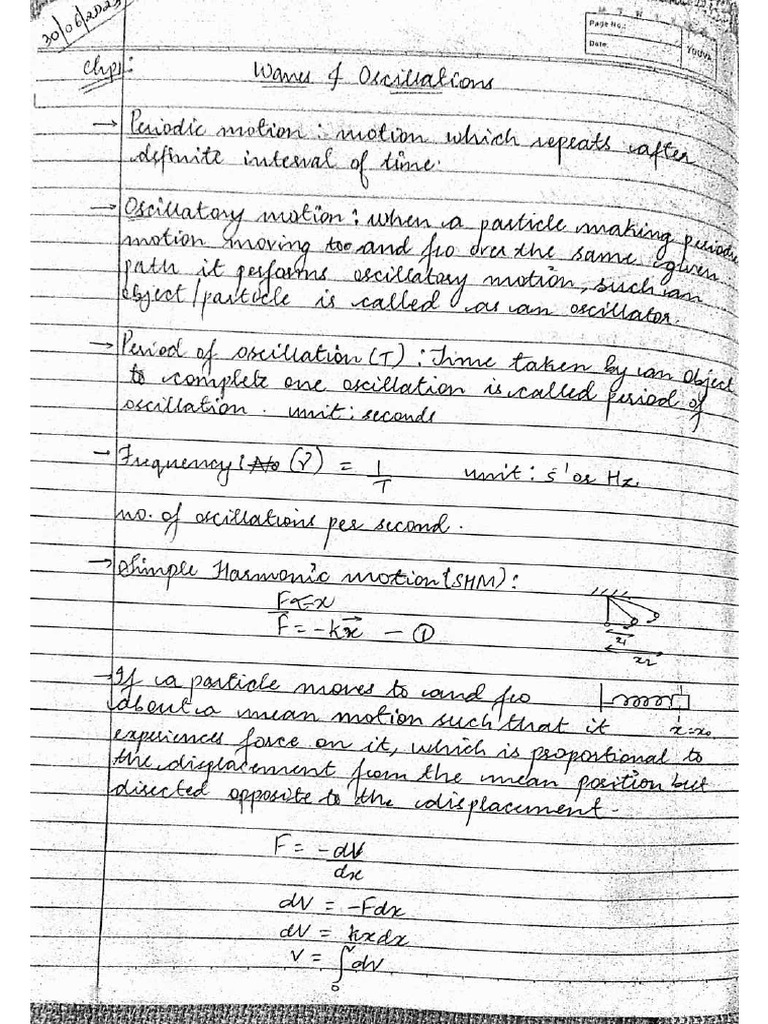 30/06/2023
Page No.:
Date:
YOUVA
Chp1: Waves & Oscillations
→ Periodic motion : motion which repeats after
definite interval of time.
→ Oscillatory motion : when a particle making periodic
motion moving too and fro over the same given
path it performs oscillatory motion, such an
object/particle is called as an oscillator.
→ Period of oscillation (T) : Time taken by an object
to complete one oscillation is called period of
oscillation. unit : seconds
→ Frequency : No (ν) = 1/T unit : s⁻¹ or Hz
no. of oscillations per second.
→ Simple Harmonic motion (SHM) :
F ∝ -x
F = -kx⃗ — ①
x1
x2
→ If a particle moves to and fro
about a mean motion such that it
x=x0
experiences force on it, which is proportional to
the displacement from the mean position but
directed opposite to the displacement.
F = -dV/dx
dV = -Fdx
dV = kxdx
V = ∫₀ᵛ dV